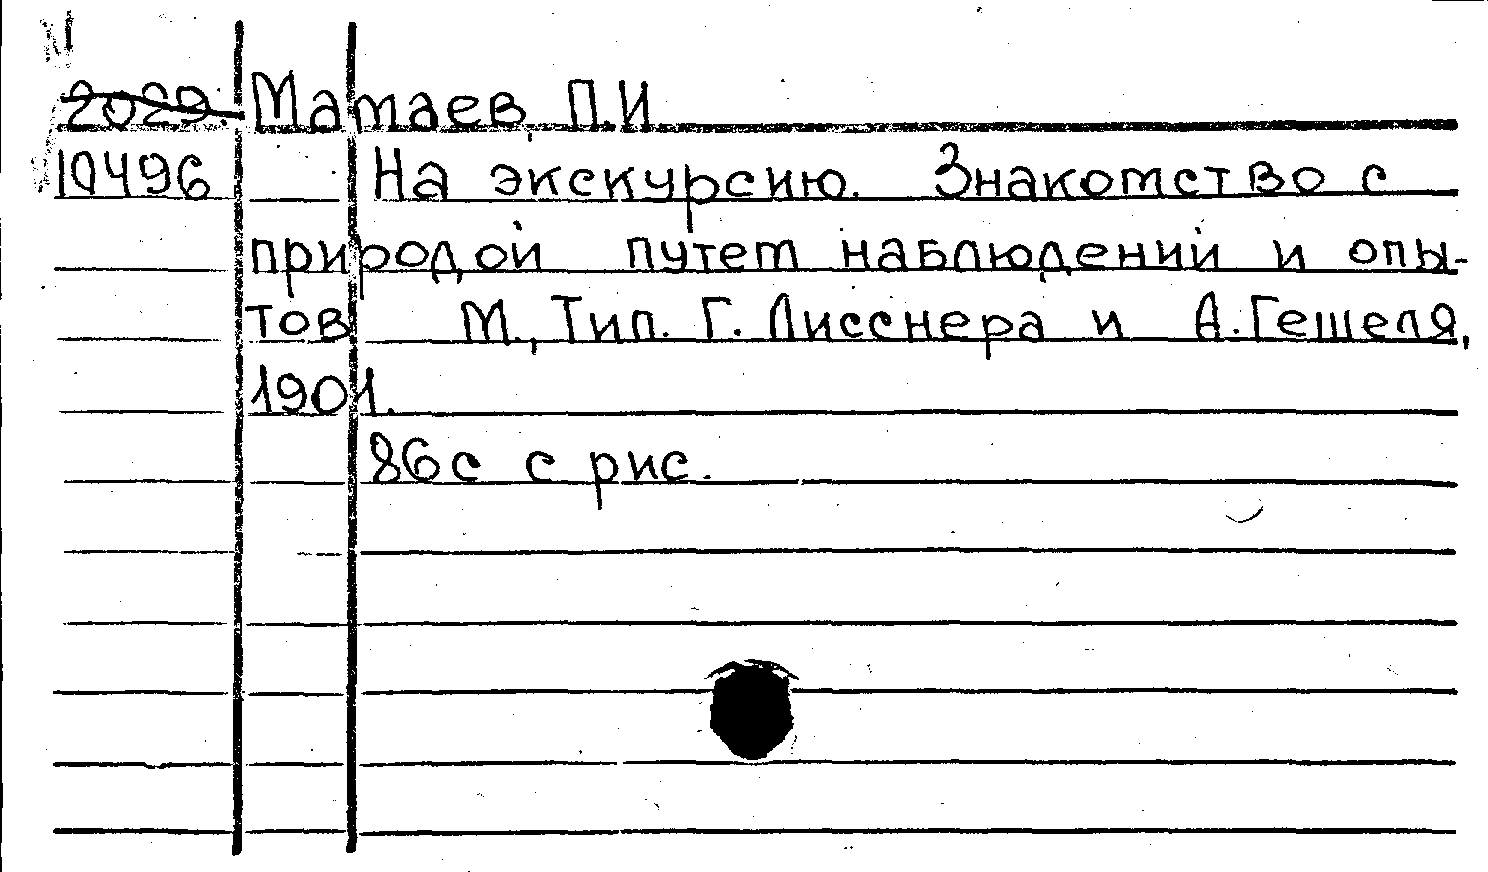 2029. Матаев, П.И.
10496 На экскурсию. Знакомство с
природой путем наблюдений и опы-
тов М., Тип. Г. Лисснера и А. Гешеля,
1901.
86с с рис.